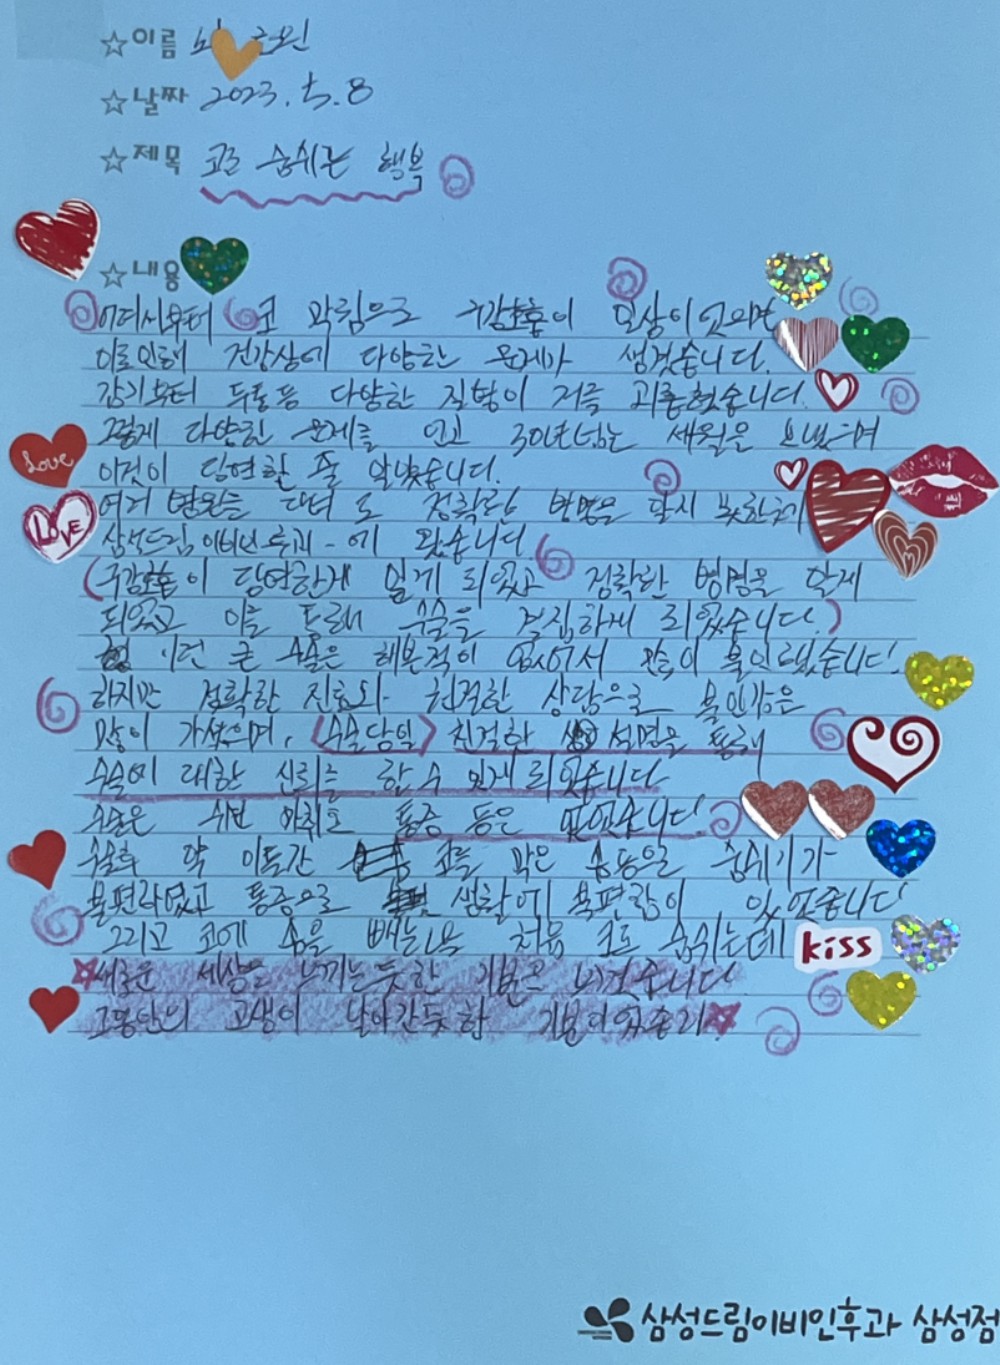 ☆이름
☆날짜 2023. 5. 8
☆제목 코로 숨쉬는 행복
☆내용
어려서부터 코 막힘으로 구강호흡이 일상이었으며
이로인해 건강상에 다양한 문제가 생겼습니다.
감기부터 두통등 다양한 질병이 저를 괴롭혔습니다.
그렇게 다양한 문제를 안고 30년넘는 세월을 보냈으며
이것이 당연한 줄 알았습니다.
여러 병원을 다녀도 정확한 병명을 알지 못한채
삼성드림이비인후과-에 왔습니다.
(구강호흡이 당연한게 알게 되었고 정확한 병명을 알게
되었고 이를 통해 수술을 결심하게 되었습니다.)
이런 큰 수술은 해본적이 없어서 많이 불안했습니다.
하지만 정확한 진료와 친절한 상담으로 불안감은
많이 가셨으며, <수술당일> 친절한 설명을 통해
수술에 대한 신뢰를 할 수 있게 되었습니다
수술은 수면 마취로 통증 등은 없었습니다.
수술후 약 이틀간 코를 막은 솜등으로 숨쉬기가
불편하였고 통증으로 생활에 불편함이 있었습니다
그리고 코에 솜을 빼는 처음 코로 숨쉬는데
새로운 세상을 느끼는듯한 기분을 느꼈습니다.
그동안의 고생이 날아간듯한
Love
LOVE
kiss
삼성드림이비인후과 삼성점